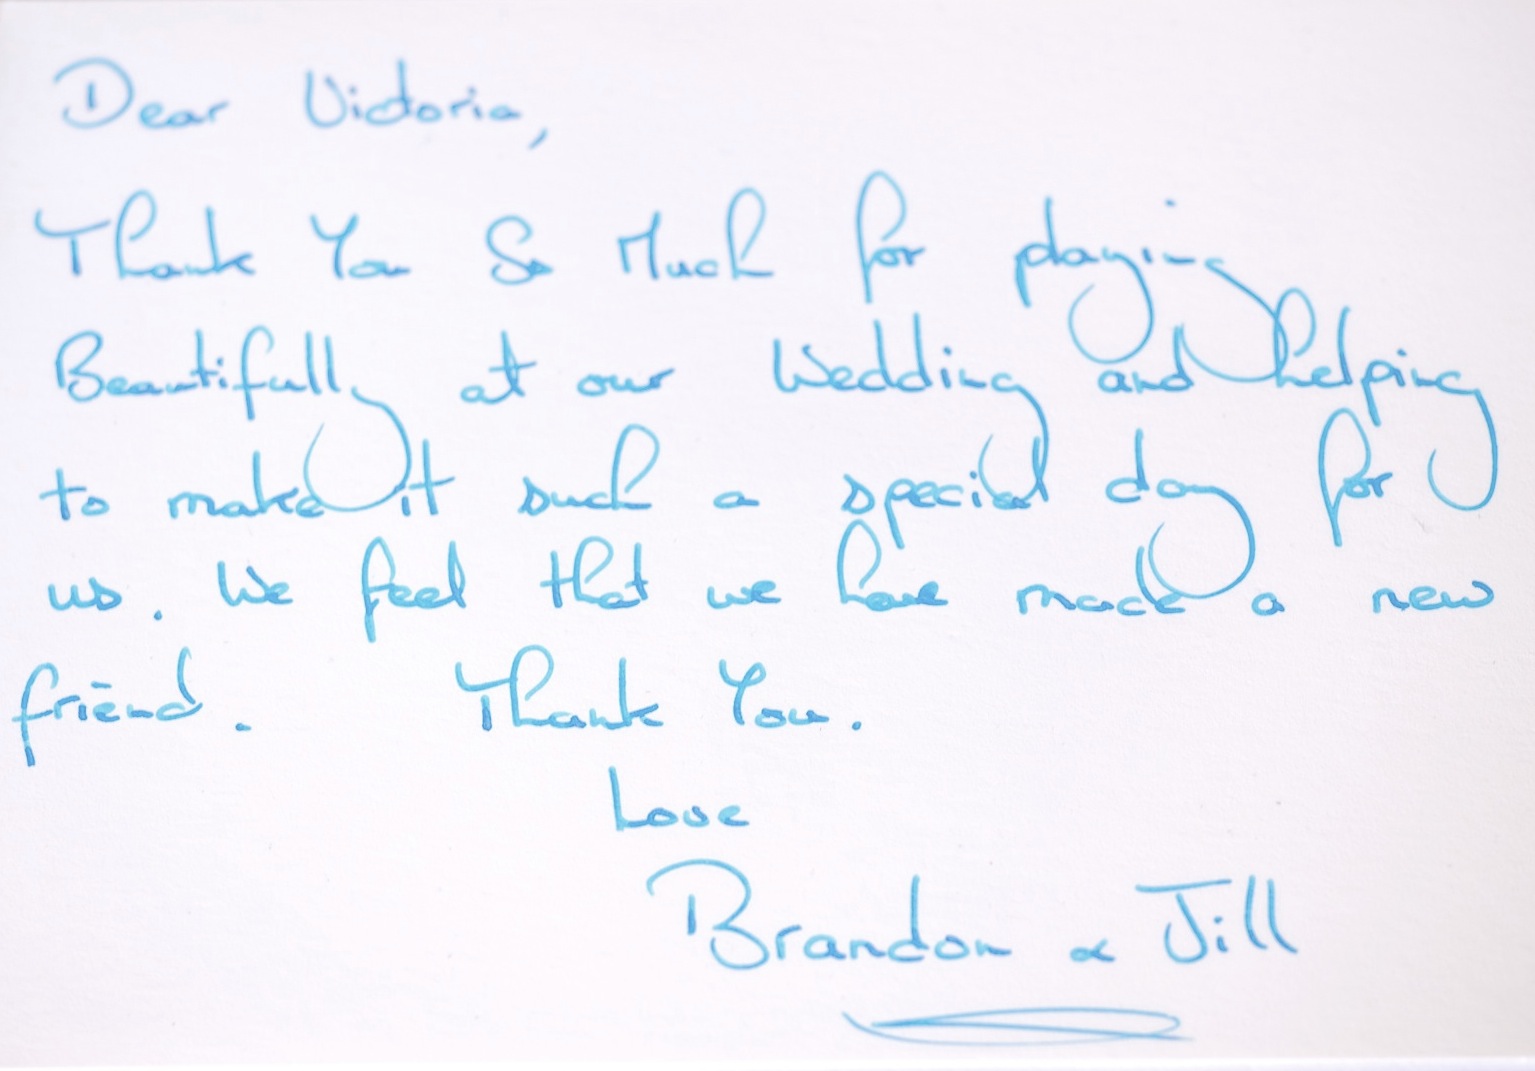 Dear Victoria,
Thank You So Much for playing
Beautifully at our Wedding and helping
to make it such a special day for
us. We feel that we have made a new
friend. Thank You.
Love
Brandon & Jill